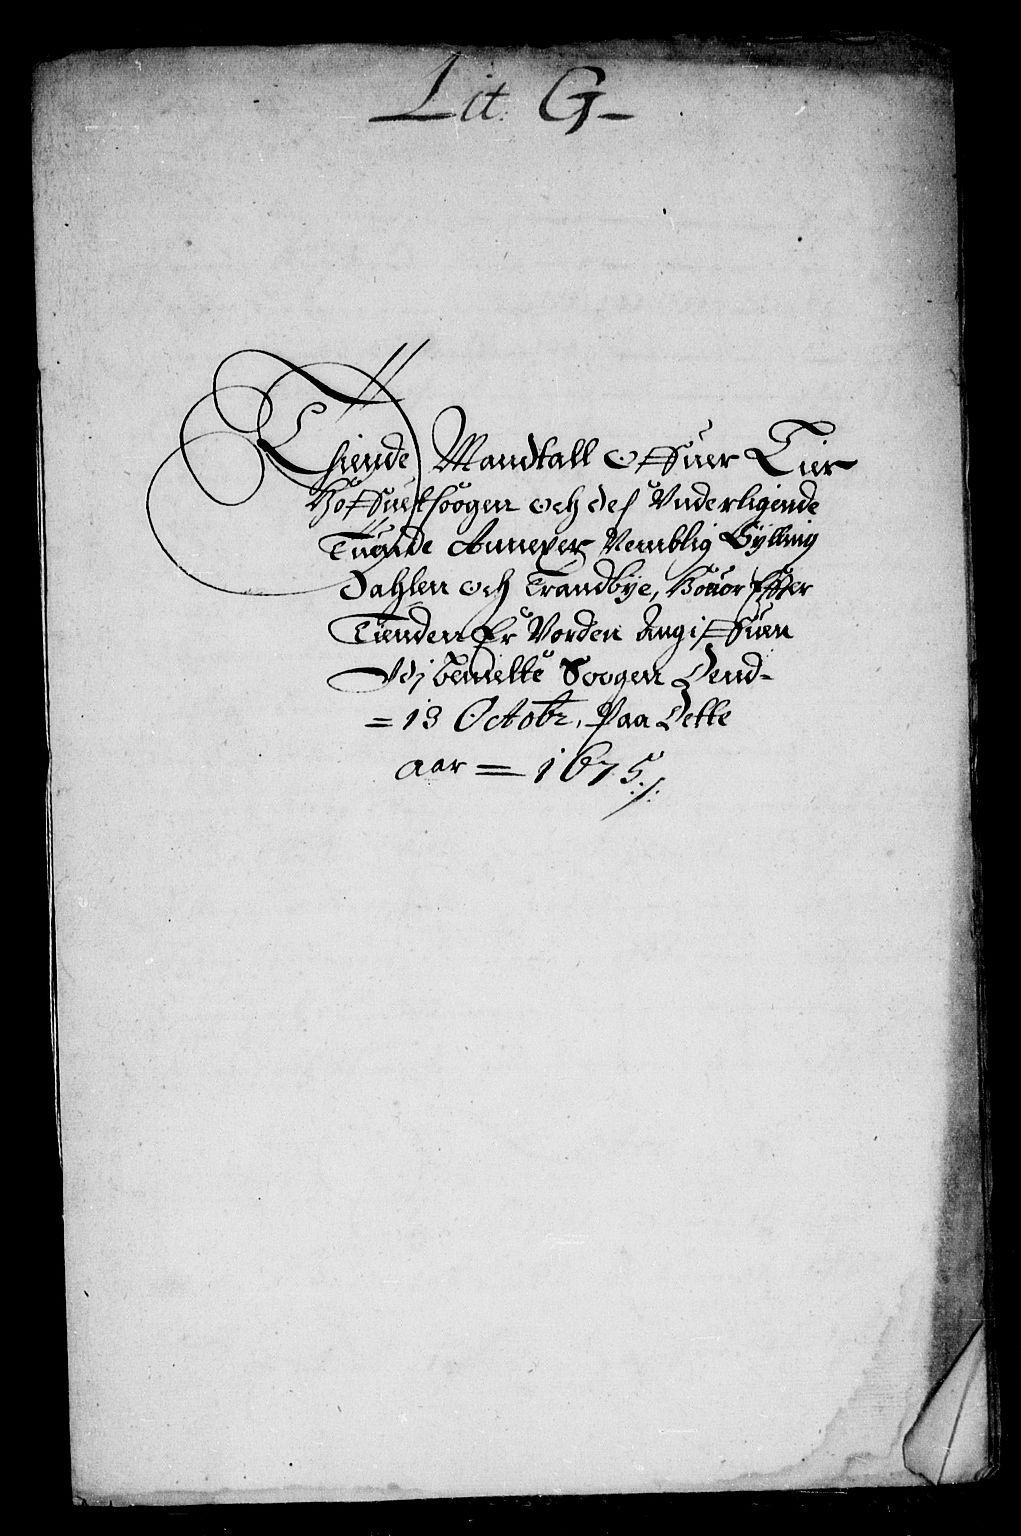 Lit: G-
Thiende Mandtall offuer Lier
Hoffuetsoogen och des Vnderligende
Tuende Annexer Nemblig Gylling
Dahlen och Trandbye, Huor Effter
Tienden Er Vorden Angiffuen
Vdj bemelte Soogen Dend-
=13 Octobr. Paa Dette
aar = 1675 ./.